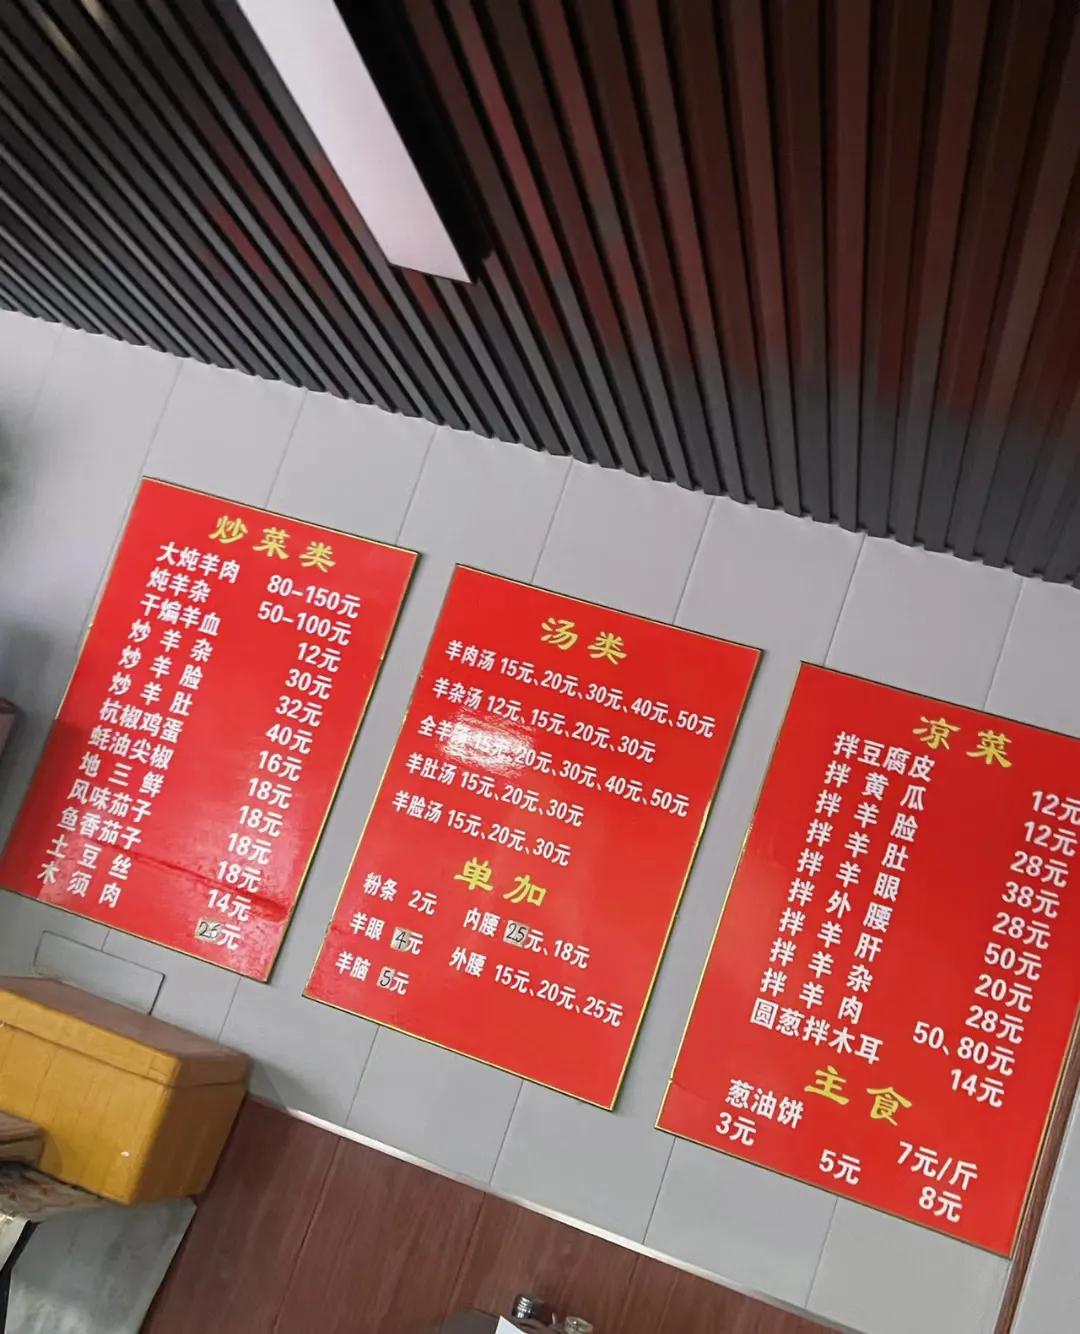 炒菜类
大炖羊肉 80-150元
炖羊杂 50-100元
干煸羊血 12元
炒羊杂 30元
炒羊脸 32元
炒羊肚 40元
杭椒鸡蛋 16元
蚝油尖椒 18元
地三鲜 18元
风味茄子 18元
鱼香茄子 18元
土豆丝 14元
木须肉 26元
汤类
羊肉汤 15元、20元、30元、40元、50元
羊杂汤 12元、15元、20元、30元
全羊 15元、20元、30元、40元、50元
羊肚汤 15元、20元、30元
羊脸汤 15元、20元、30元
单加
粉条 2元 内腰 25元、18元
羊眼 4元 外腰 15元、20元、25元
羊脑 5元
凉菜
拌豆腐皮 12元
拌黄瓜 12元
拌羊脸 28元
拌羊肚 38元
拌羊眼 28元
拌外腰 50元
拌羊肝 20元
拌羊杂 28元
拌羊肉 50、80元
圆葱拌木耳 14元
主食
葱油饼 7元/斤
3元 5元 8元